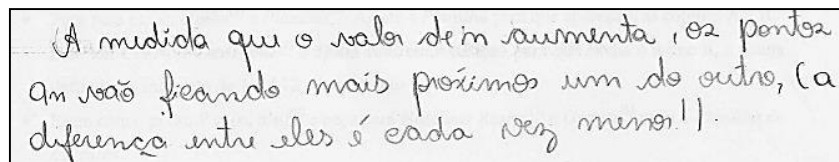 A medida que o valor de n aumenta, os pontos
an vão ficando mais proximos um do outro, (a
diferença entre eles é cada vez menos!!